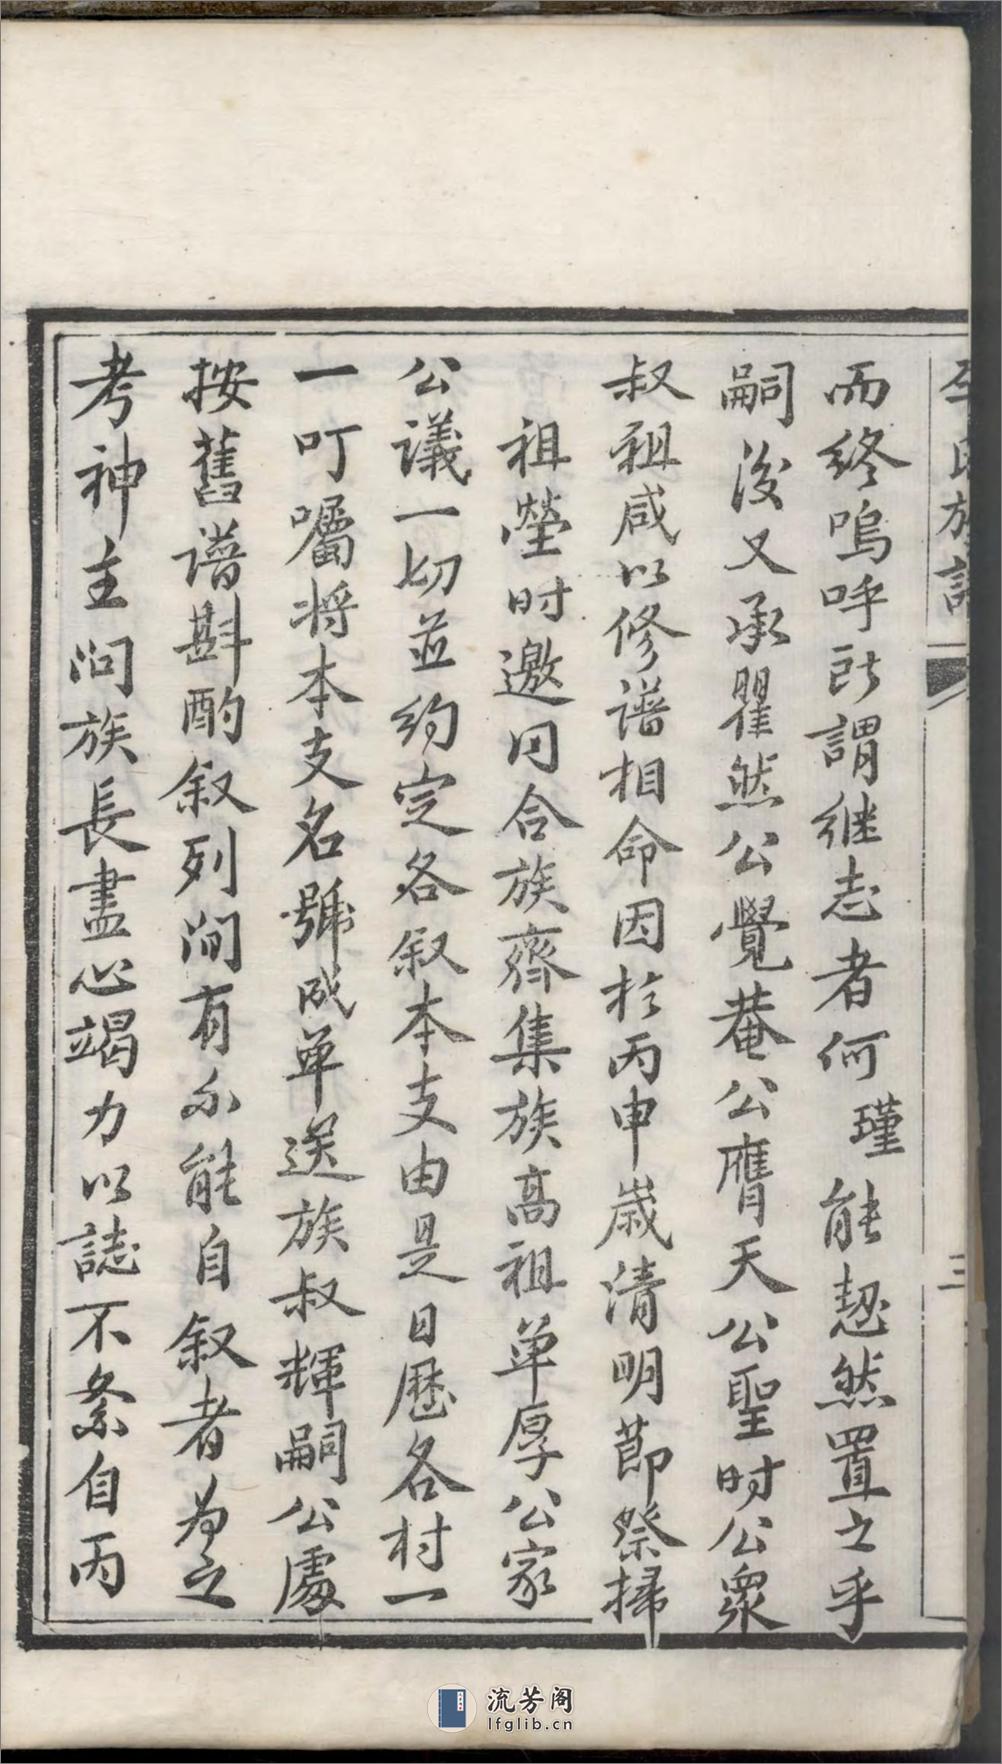 族譜
三
而終嗚呼所謂继志者何瑾能恝然置之乎
嗣後又承瞿然公覺菴公膺天公聖时公衆
叔祖咸以修谱相命因於丙申嵗清明莭祭掃
祖塋时邀同合族齊集族高祖单厚公家
公議一切並约定各叙本支由是日歷各村一
一叮囑将本支名號成单送族叔輝嗣公處
按舊谱斟酌叙列间有不能自叙者为之
考神主问族長盡心竭力以誌不紊自丙
流芳阁
lfglib.cn